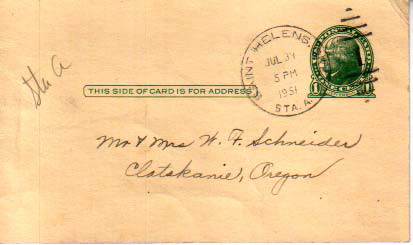 Sta A
SAINT HELENS
JUL 31
5 PM
1951
STA. A.
THIS SIDE OF CARD IS FOR ADDRESS
1 1
Mr & Mrs W. F. Schneider
Clatskanie, Oregon